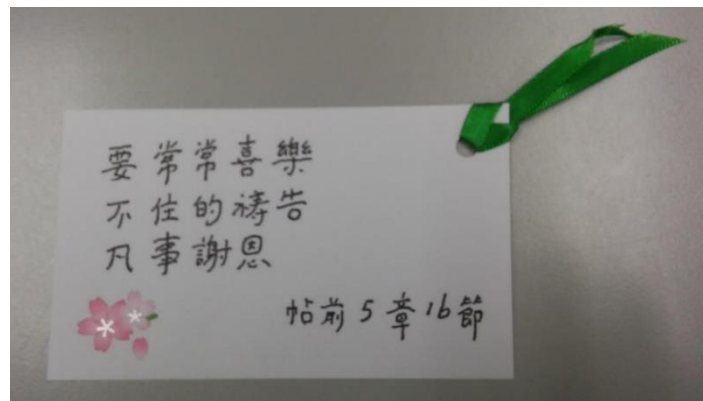 要常常喜樂
不住的禱告
凡事謝恩
帖前5章16節